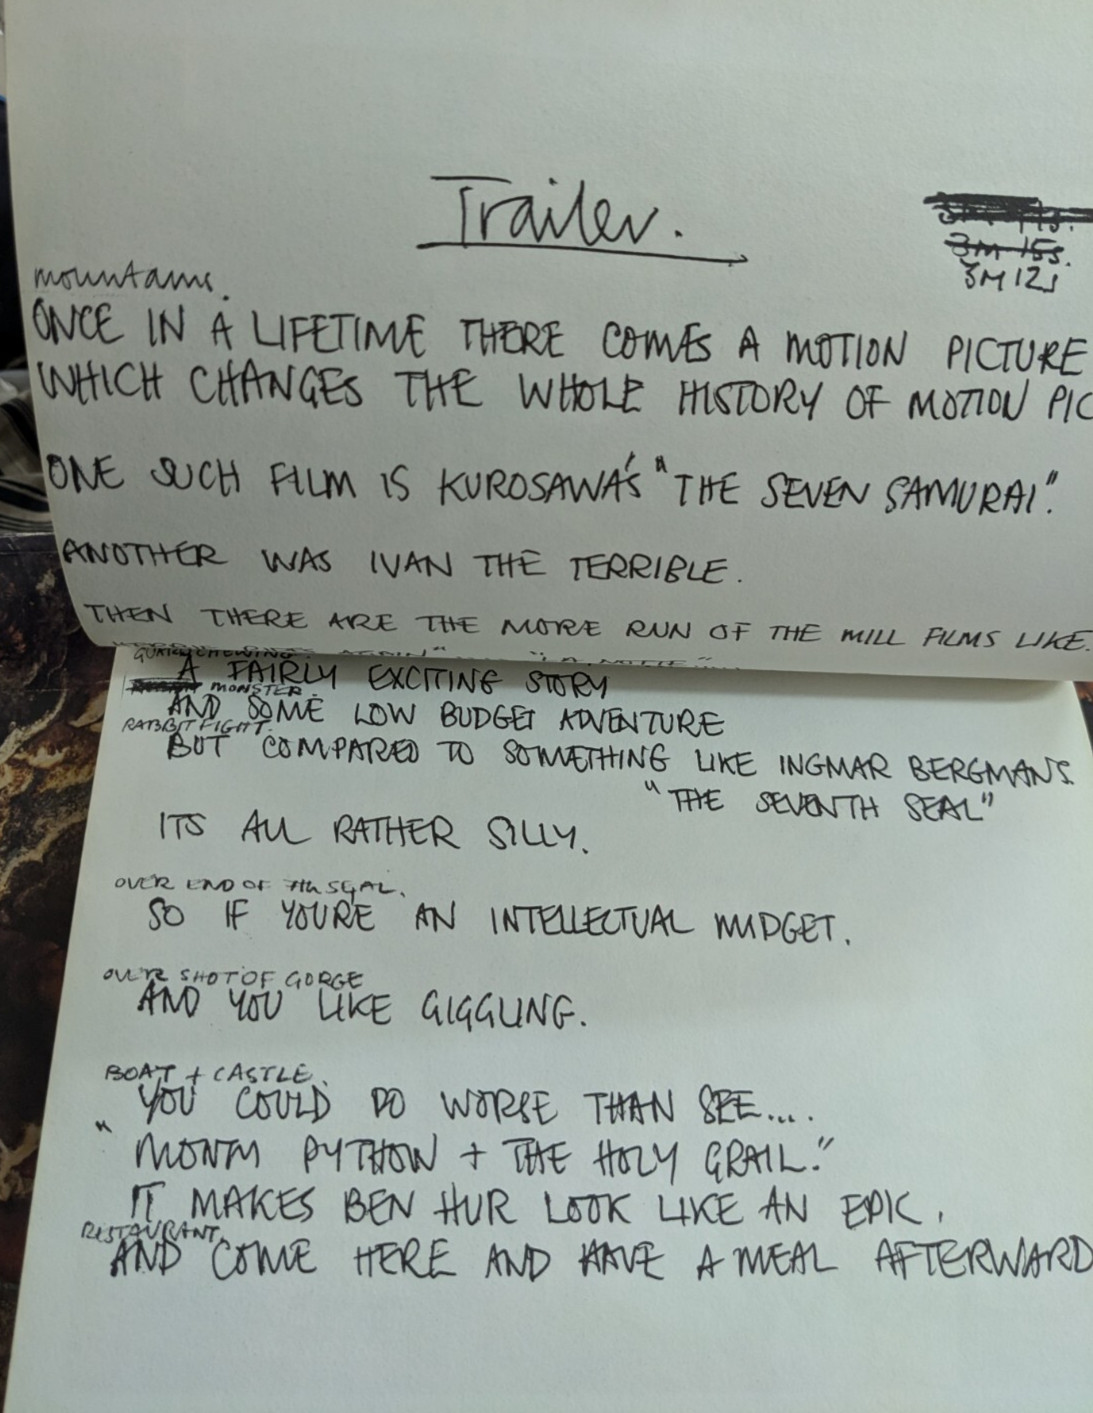 Trailer.
3m 15s.
3M 12s
mountains.
ONCE IN A LIFETIME THERE COMES A MOTION PICTURE
WHICH CHANGES THE WHOLE HISTORY OF MOTION PIC
ONE SUCH FILM IS KUROSAWA'S "THE SEVEN SAMURAI".
ANOTHER WAS IVAN THE TERRIBLE.
THEN THERE ARE THE MORE RUN OF THE MILL FILMS LIKE.
A FAIRLY EXCITING STORY
MONSTER.
AND SOME LOW BUDGET ADVENTURE
RABBIT FIGHT.
BUT COMPARED TO SOMETHING LIKE INGMAR BERGMANS.
"THE SEVENTH SEAL"
ITS ALL RATHER SILLY.
OVER END OF 7th SEAL.
SO IF YOURE AN INTELLECTUAL MIDGET.
OVER SHOT OF GORGE
AND YOU LIKE GIGGLING.
BOAT + CASTLE.
YOU COULD DO WORSE THAN SEE....
"MONTY PYTHON + THE HOLY GRAIL."
IT MAKES BEN HUR LOOK LIKE AN EPIC.
RESTAURANT.
AND COME HERE AND HAVE A MEAL AFTERWARD